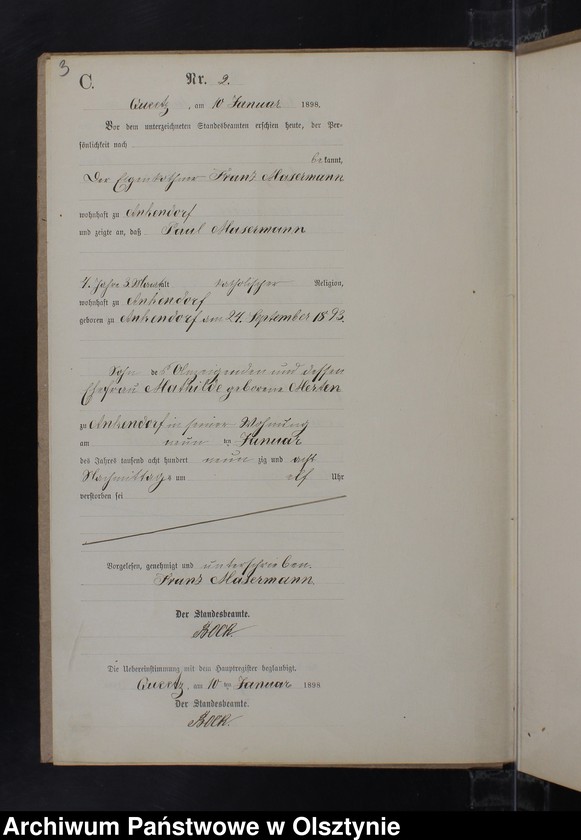 3
C.
Nr. 2.
Queetz, am 10 Januar 1898.
Vor dem unterzeichneten Standesbeamten erschien heute, der Per-
sönlichkeit nach
bekannt,
Der Eigenkäthner Franz Masermann
wohnhaft zu Ankendorf
und zeigte an, daß Paul Masermann
4. Jahre 3. Monat alt katholischer Religion,
wohnhaft zu Ankendorf
geboren zu Ankendorf am 24. September 1893.
Sohn des Anzeigenden und dessen
Ehefrau Mathilde geborene Merten
zu Ankendorf in seiner Wohnung
am neun ten Januar
des Jahres tausend acht hundert neun zig und acht
Nachmittags um elf Uhr
verstorben sei
Vorgelesen, genehmigt und unterschrieben.
Franz Masermann
Der Standesbeamte.
Bock.
Die Uebereinstimmung mit dem Hauptregister beglaubigt.
Queetz, am 10 ten Januar 1898
Der Standesbeamte.
Bock.
Archiwum Państwowe w Olsztynie